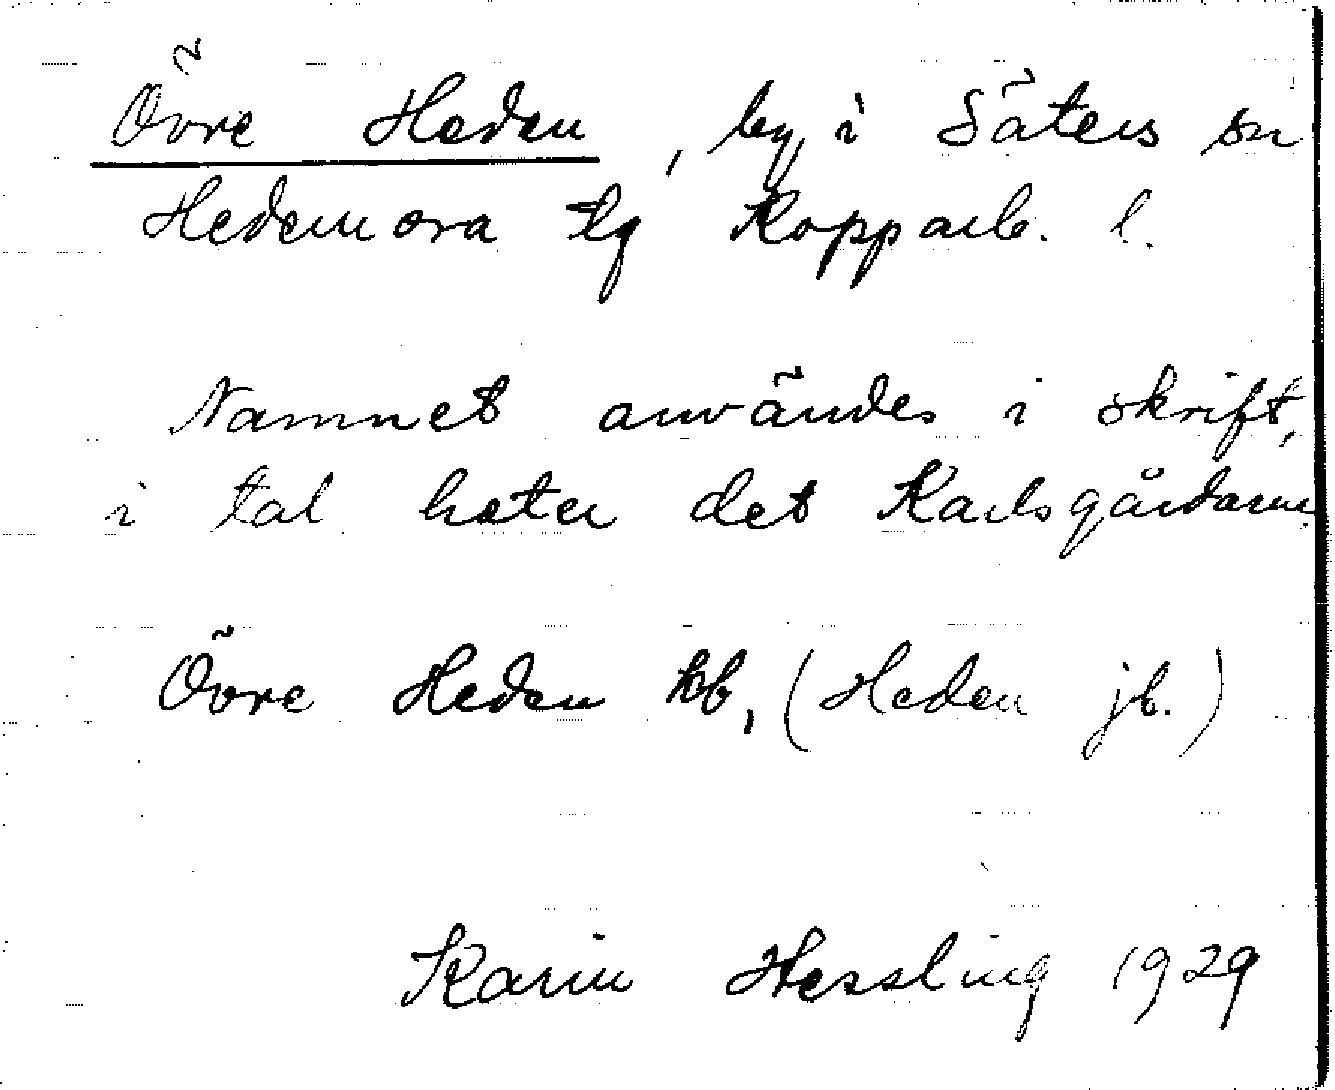 Övre Heden, by i Säters sn
Hedemora tg Kopparb. l.
Namnet användes i skrift,
i tal heter det Karlsgårdarne
Övre Heden kb, (Heden jb.)
Karin Hessling 1929